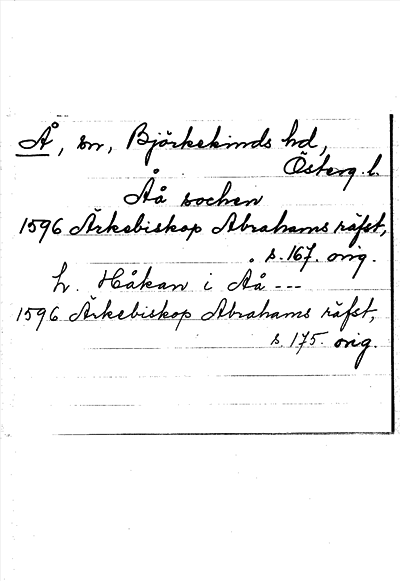 Å, sn, Björkekinds hd,
Österg. l.
Åå sochen
1596 Ärkebiskop Abrahams räfst,
s. 167. orig.
h. Håkan i Åå ---
1596 Ärkebiskop Abrahams räfst,
s. 175. orig.